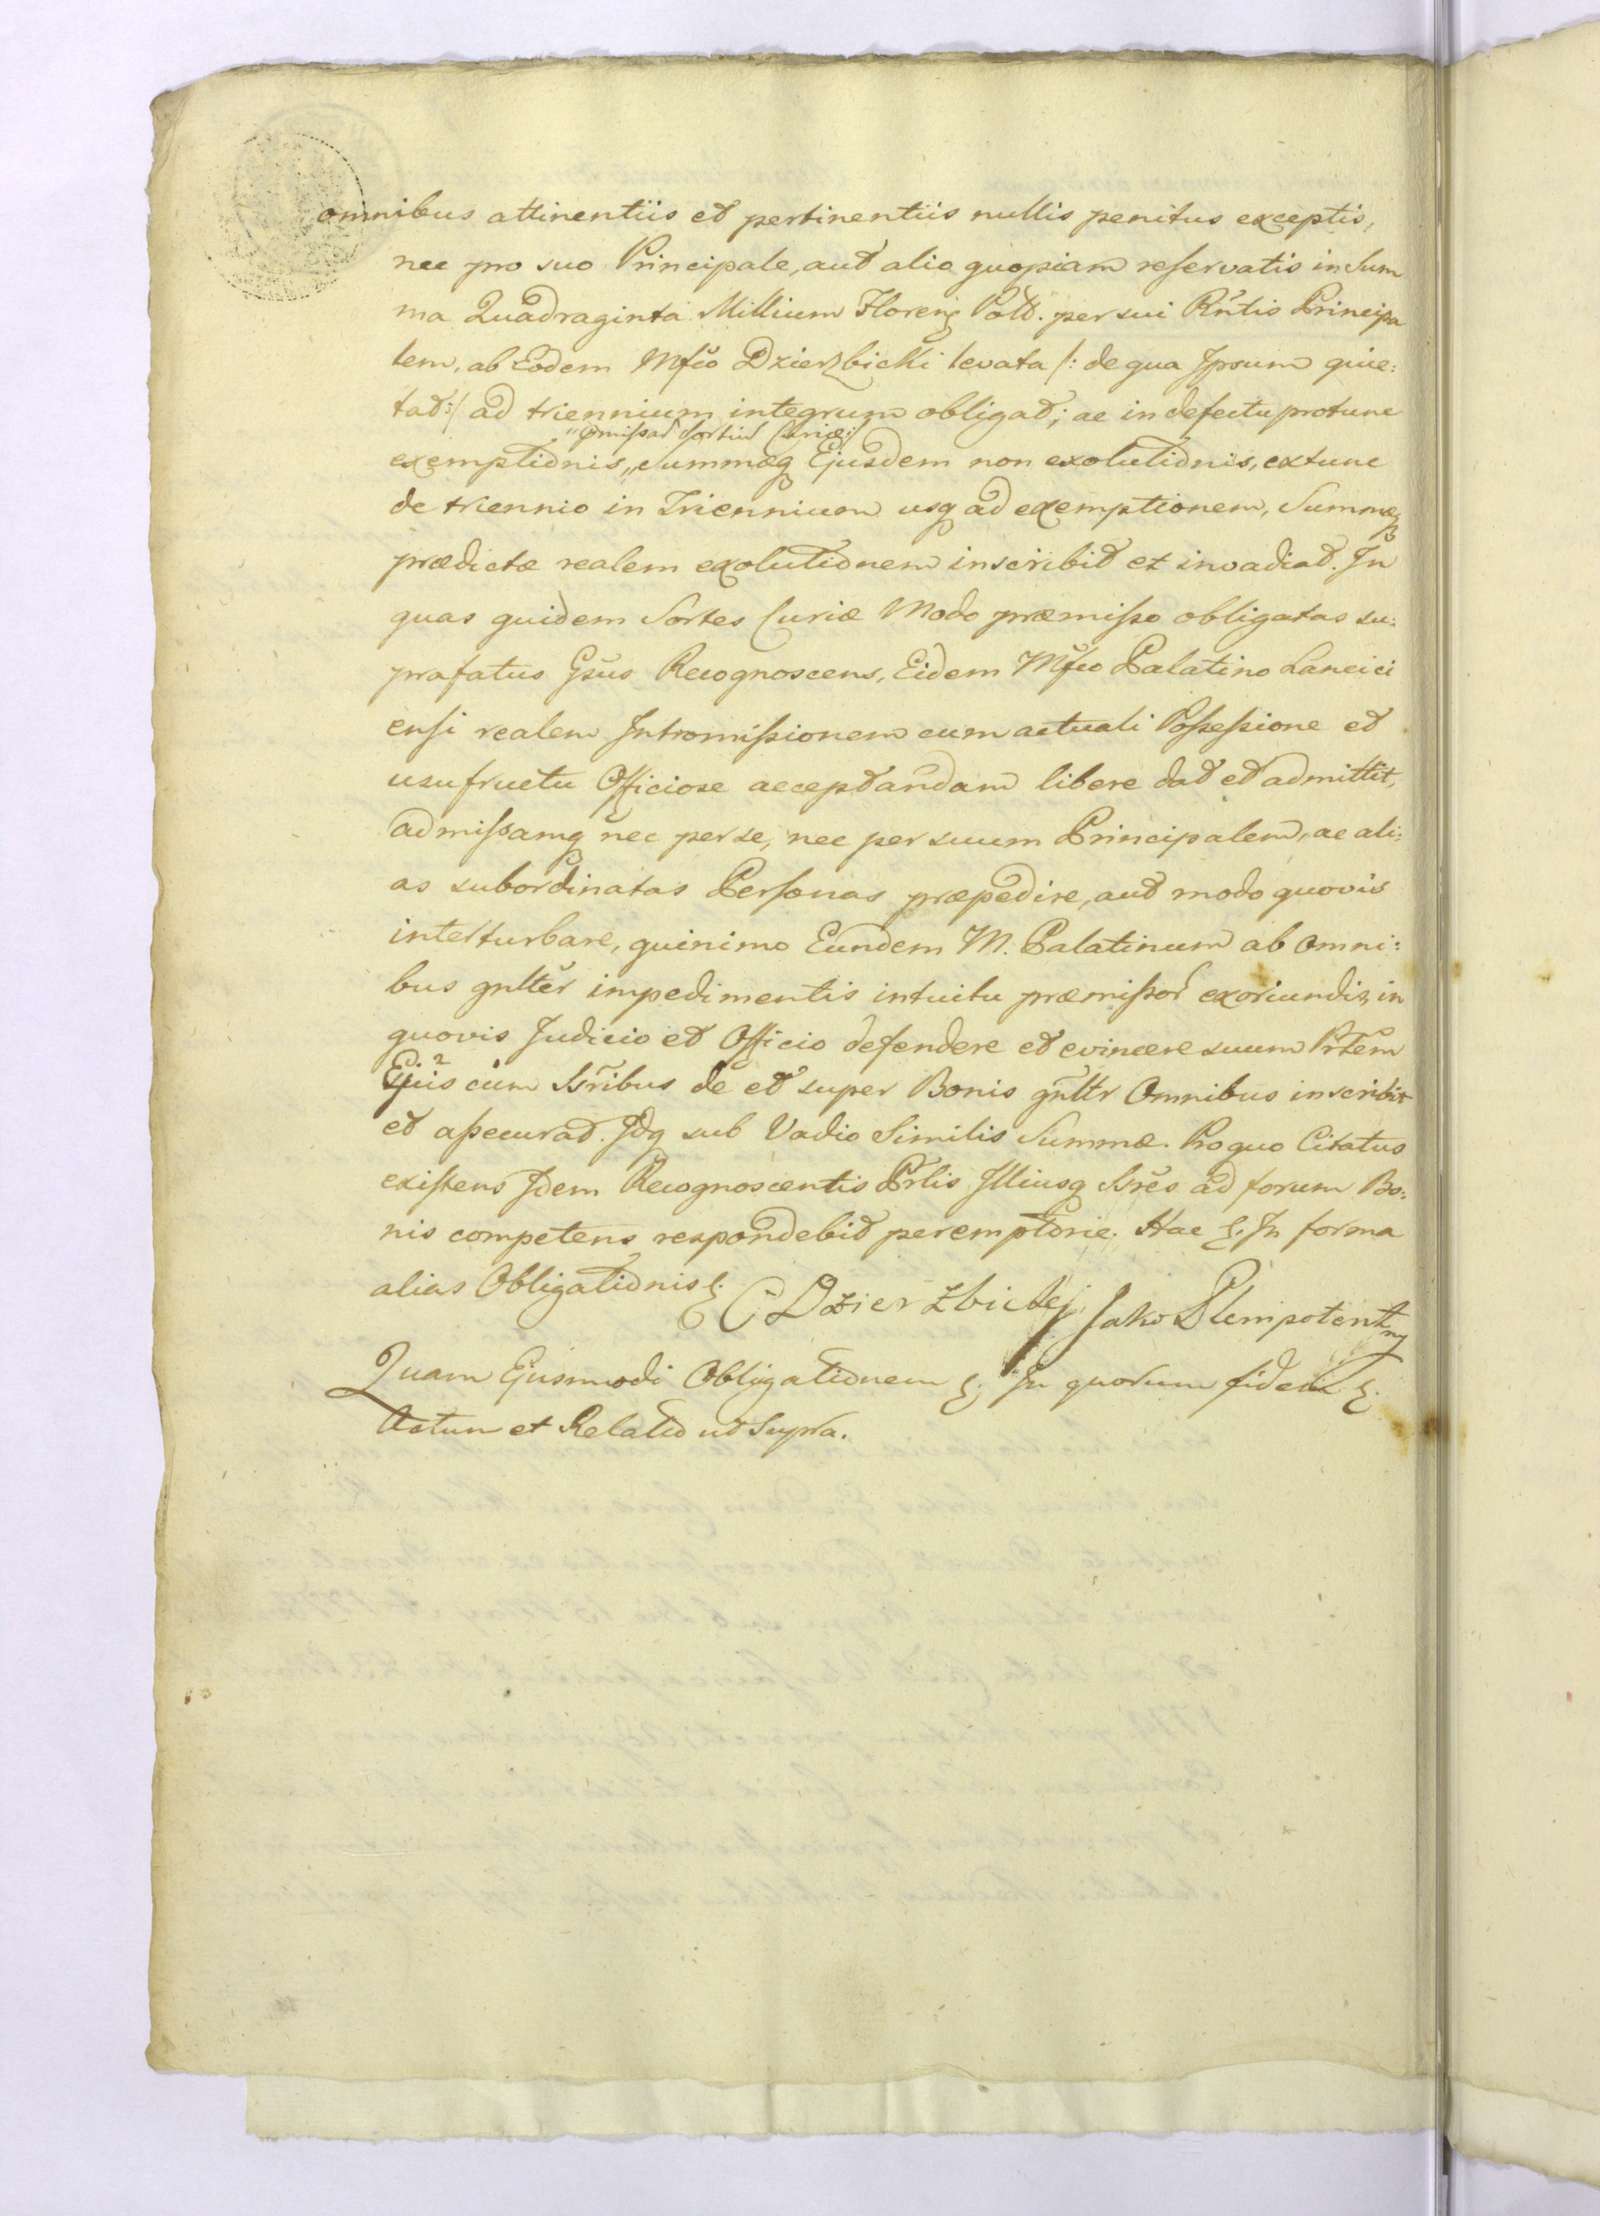 omnibus attinentiis et pertinentiis nullis penitus exceptis,
nec pro suo Principale, aut alio quopiam reservatis in Sum
ma Quadraginta Millium Floreng Poll. per sui Rntis Principa
lem, ab Eodem Mfco Dzierzbicki levata /: de qua Ipsum quie:
tat :/ ad triennium integrum obligat; ac in defectu protunc
„pmissar Sortiu Curiæ:/
exemptionis „ Summæq Ejusdem non exolutionis, extunc
de triennio in Triennium usq ad exemptionem, Summæq
prædictæ realem exolutionem inscribit et invadiat. In
quas quidem Sortes Curiæ Modo præmisso obligatas su:
prafatus Gsus Recognoscens, Eidem Mfco Palatino Lancici
ensi realem Intromissionem cum actuali Possessione et
usufructu Officiose acceptandam libere dat et admittit,
admissamq nec per se, nec per suum Principalem, ac ali:
as subordinatas Personas præpedire, aut modo quovis
interturbare, quinimo Eundem M. Palatinum ab omni:
bus gnlter impedimentis intuitu præmissor exoriundis, in
quovis Judicio et Officio defendere et evincere suum Prlem
Ejus cum Ssribus de et super Bonis gnltr Omnibus inscribit
et assecurat. Idq sub Vadio Similis Summæ. Pro quo Citatus
existens Idem Recognoscentis Prlis Illiusq Ssres ad forum Bo:
nis competens respondebit peremptorie. Hac &. In forma
alias Obligationis &.
C Dzierzbickj Jako Plenipotentny
Quam Ejusmodi Obligationem &. In quorum fidem &.
Actum et Relatio ut Supra.